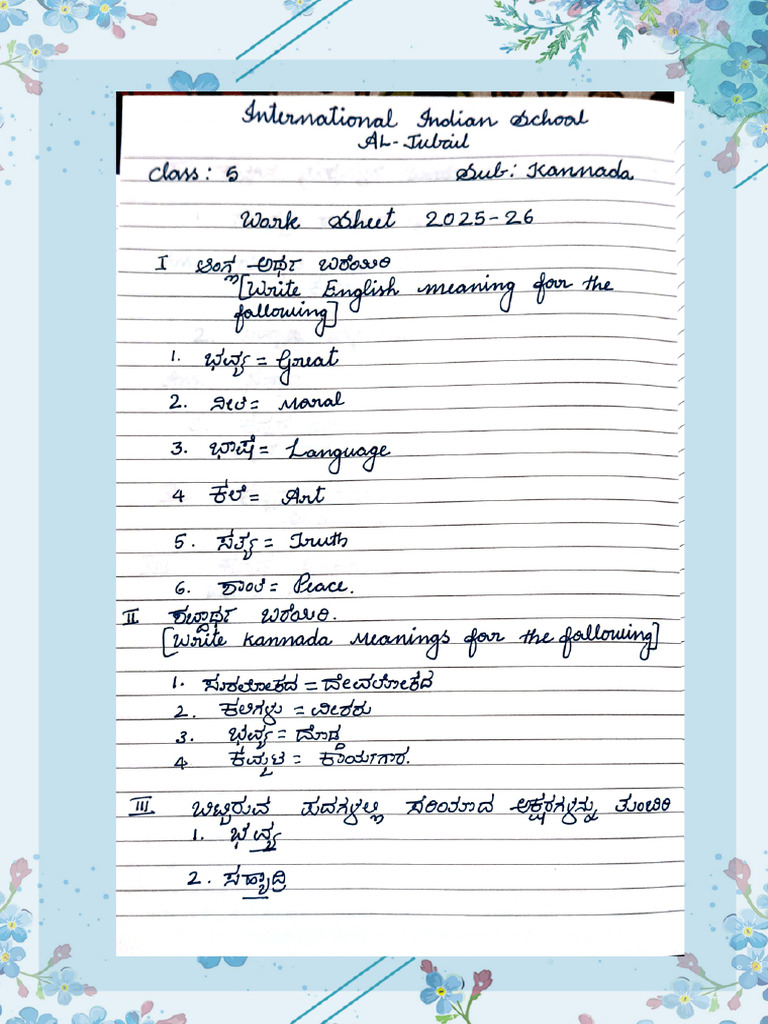 International Indian School
AL-Jubail
Class: 5 Sub: Kannada
Work Sheet 2025-26
I ಆಂಗ್ಲ ಅರ್ಥ ಬರೆಯಿರಿ
[Write English meaning for the
following]
1. ಭವ್ಯ = Great
2. ನೀತಿ = Moral
3. ಭಾಷೆ = Language
4 ಕಲೆ = Art
5. ಸತ್ಯ = Truth
6. ಶಾಂತಿ = Peace.
II ಶಬ್ದಾರ್ಥ ಬರೆಯಿರಿ.
[Write Kannada Meanings for the following]
1. ಸುರಲೋಕದ = ದೇವಲೋಕದ
2. ಕಲಿಗಳು = ವೀರರು
3. ಭವ್ಯ = ದೊಡ್ಡ
4 ಕಮ್ಮಟ = ಕಾರ್ಯಾಗಾರ.
III ಬಿಟ್ಟಿರುವ ಪದಗಳಲ್ಲಿ ಸರಿಯಾದ ಅಕ್ಷರಗಳನ್ನು ತುಂಬಿರಿ
1. ಭವ್ಯ
2. ಸಹ್ಯಾದ್ರಿ